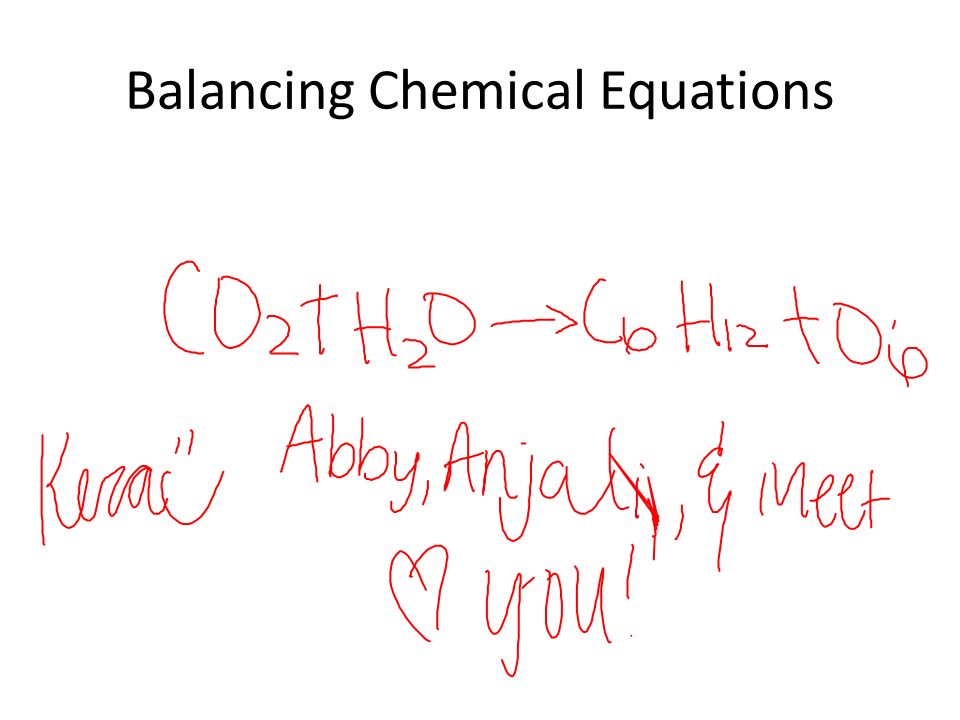 Balancing Chemical Equations
CO₂ + H₂O → C₆ H₁₂ + O₆
Abby, Anjali, & Meet
♡ you!